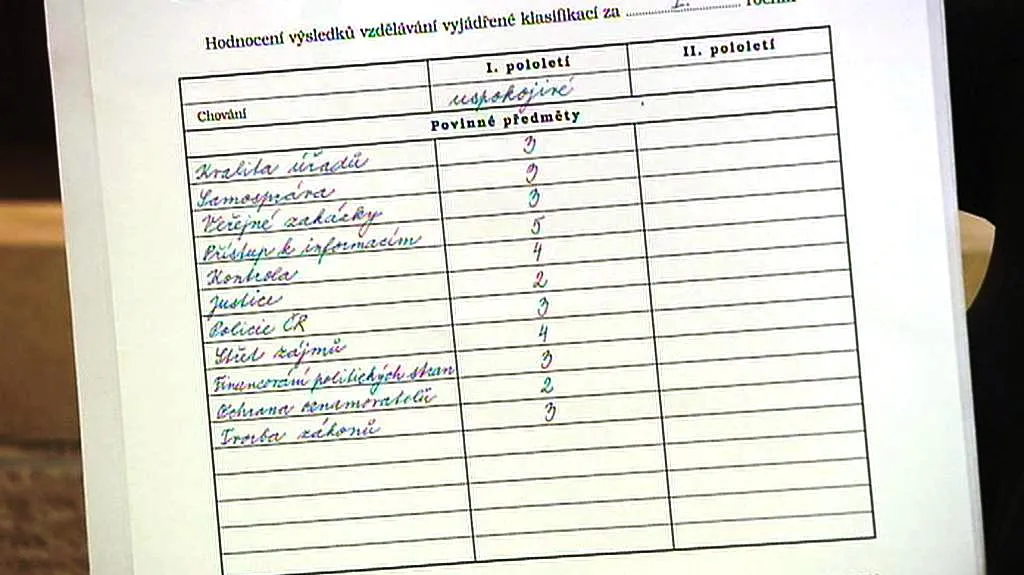 Hodnocení výsledků vzdělávání vyjádřené klasifikací za I. ročník
I. pololetí II. pololetí
Chování uspokojivé
Povinné předměty
Kvalita úřadů 3
Samospráva 3
Veřejné zakázky 3
Přístup k informacím 5
Kontrola 4
Justice 2
Policie ČR 3
Střet zájmů 4
Financování politických stran 3
Ochrana oznamovatelů 2
Tvorba zákonů 3